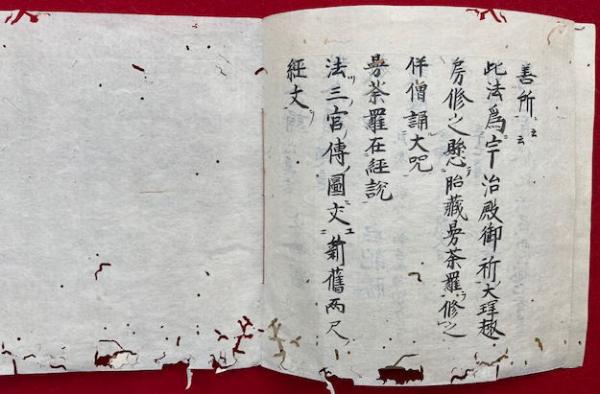 善所云云
此法爲宇治殿御祈大拝趣
房修之懸胎藏曼荼羅修之
伴僧誦大咒
曼荼羅在経説
法三宮傳圖文新舊両尺
経文